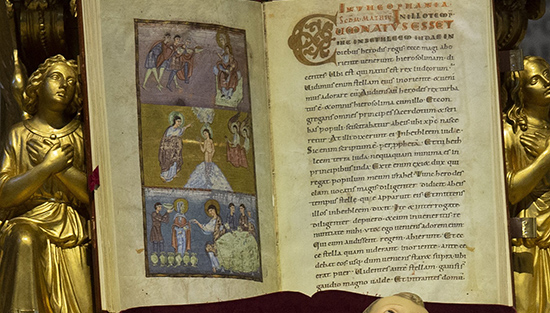 IN THEOPHANIA
SCDM MATHEU IN ILLO TEMPR
CUM NATUS ESSET
IHC IN BETHLEEM IUDAE IN
diebus herodis regis ecce magi abo
riente uenerunt hierosolimam di
centes. Vbi est qui natus est rex iudeorum?
Vidimus enim stellam eius in oriente & ueni
mus adorare eū. Audiens aū herodes rex turba
tus ē & omnis hierosolima cum illo. Et con
gregans omnes principes sacerdotum & scri
bas populi sciscitabatur ab eis ubi xp̄s nasce
retur. At illi dixerunt ei. In bethleem iudę
Sic enim scriptum ē per ꝓpheta. Et tu beth
leem terra iuda nequaquam minima es
in principibus iuda. Ex te enim exiet dux qui
regat populum meum israhel. Tunc herodes
clam uocatis magis diligenter didicit ab eis
tempus stellę quę apparuit eis. Et mittens
illos in bethleem dixit. Ite & interrogate
diligenter de puero. & cum inueneritis re
nuntiate mihi ut & ego ueniens adorem eum.
Qui cum audissent regem. abierunt. Et ec
ce stella quam uiderant inoriente. ante ce
debat eos usq; dum ueniens staret supra ubi
erat puer. Videntes autē stellam gauisi st̄
gaudio magno ualde.